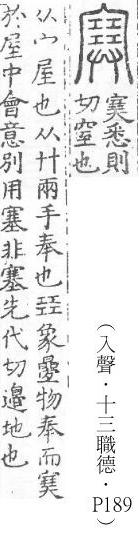 𡨄悉則
切窒也
从宀屋也从廾兩手奉也㠭象疊物奉而𡨄
於屋中會意別用塞非塞先代切邊地也
（入聲．十三職德．P189）